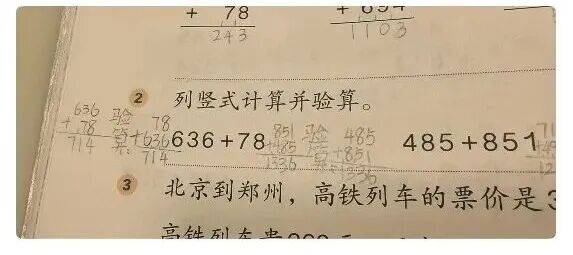 + 78
243
1103
2 列竖式计算并验算。
636 验 78
+ 78 算: +636
714 714
636+78
851 验 485
+485 算: +851
1336 1336
485+851
3 北京到郑州，高铁列车的票价是
高铁列车贵